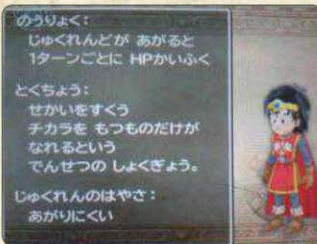 のうりょく：
じゅくれんどが あがると
1ターンごとに HPかいふく
とくちょう：
せかいをすくう
チカラを もつものだけが
なれるという
でんせつの しょくぎょう。
じゅくれんのはやさ：
あがりにくい